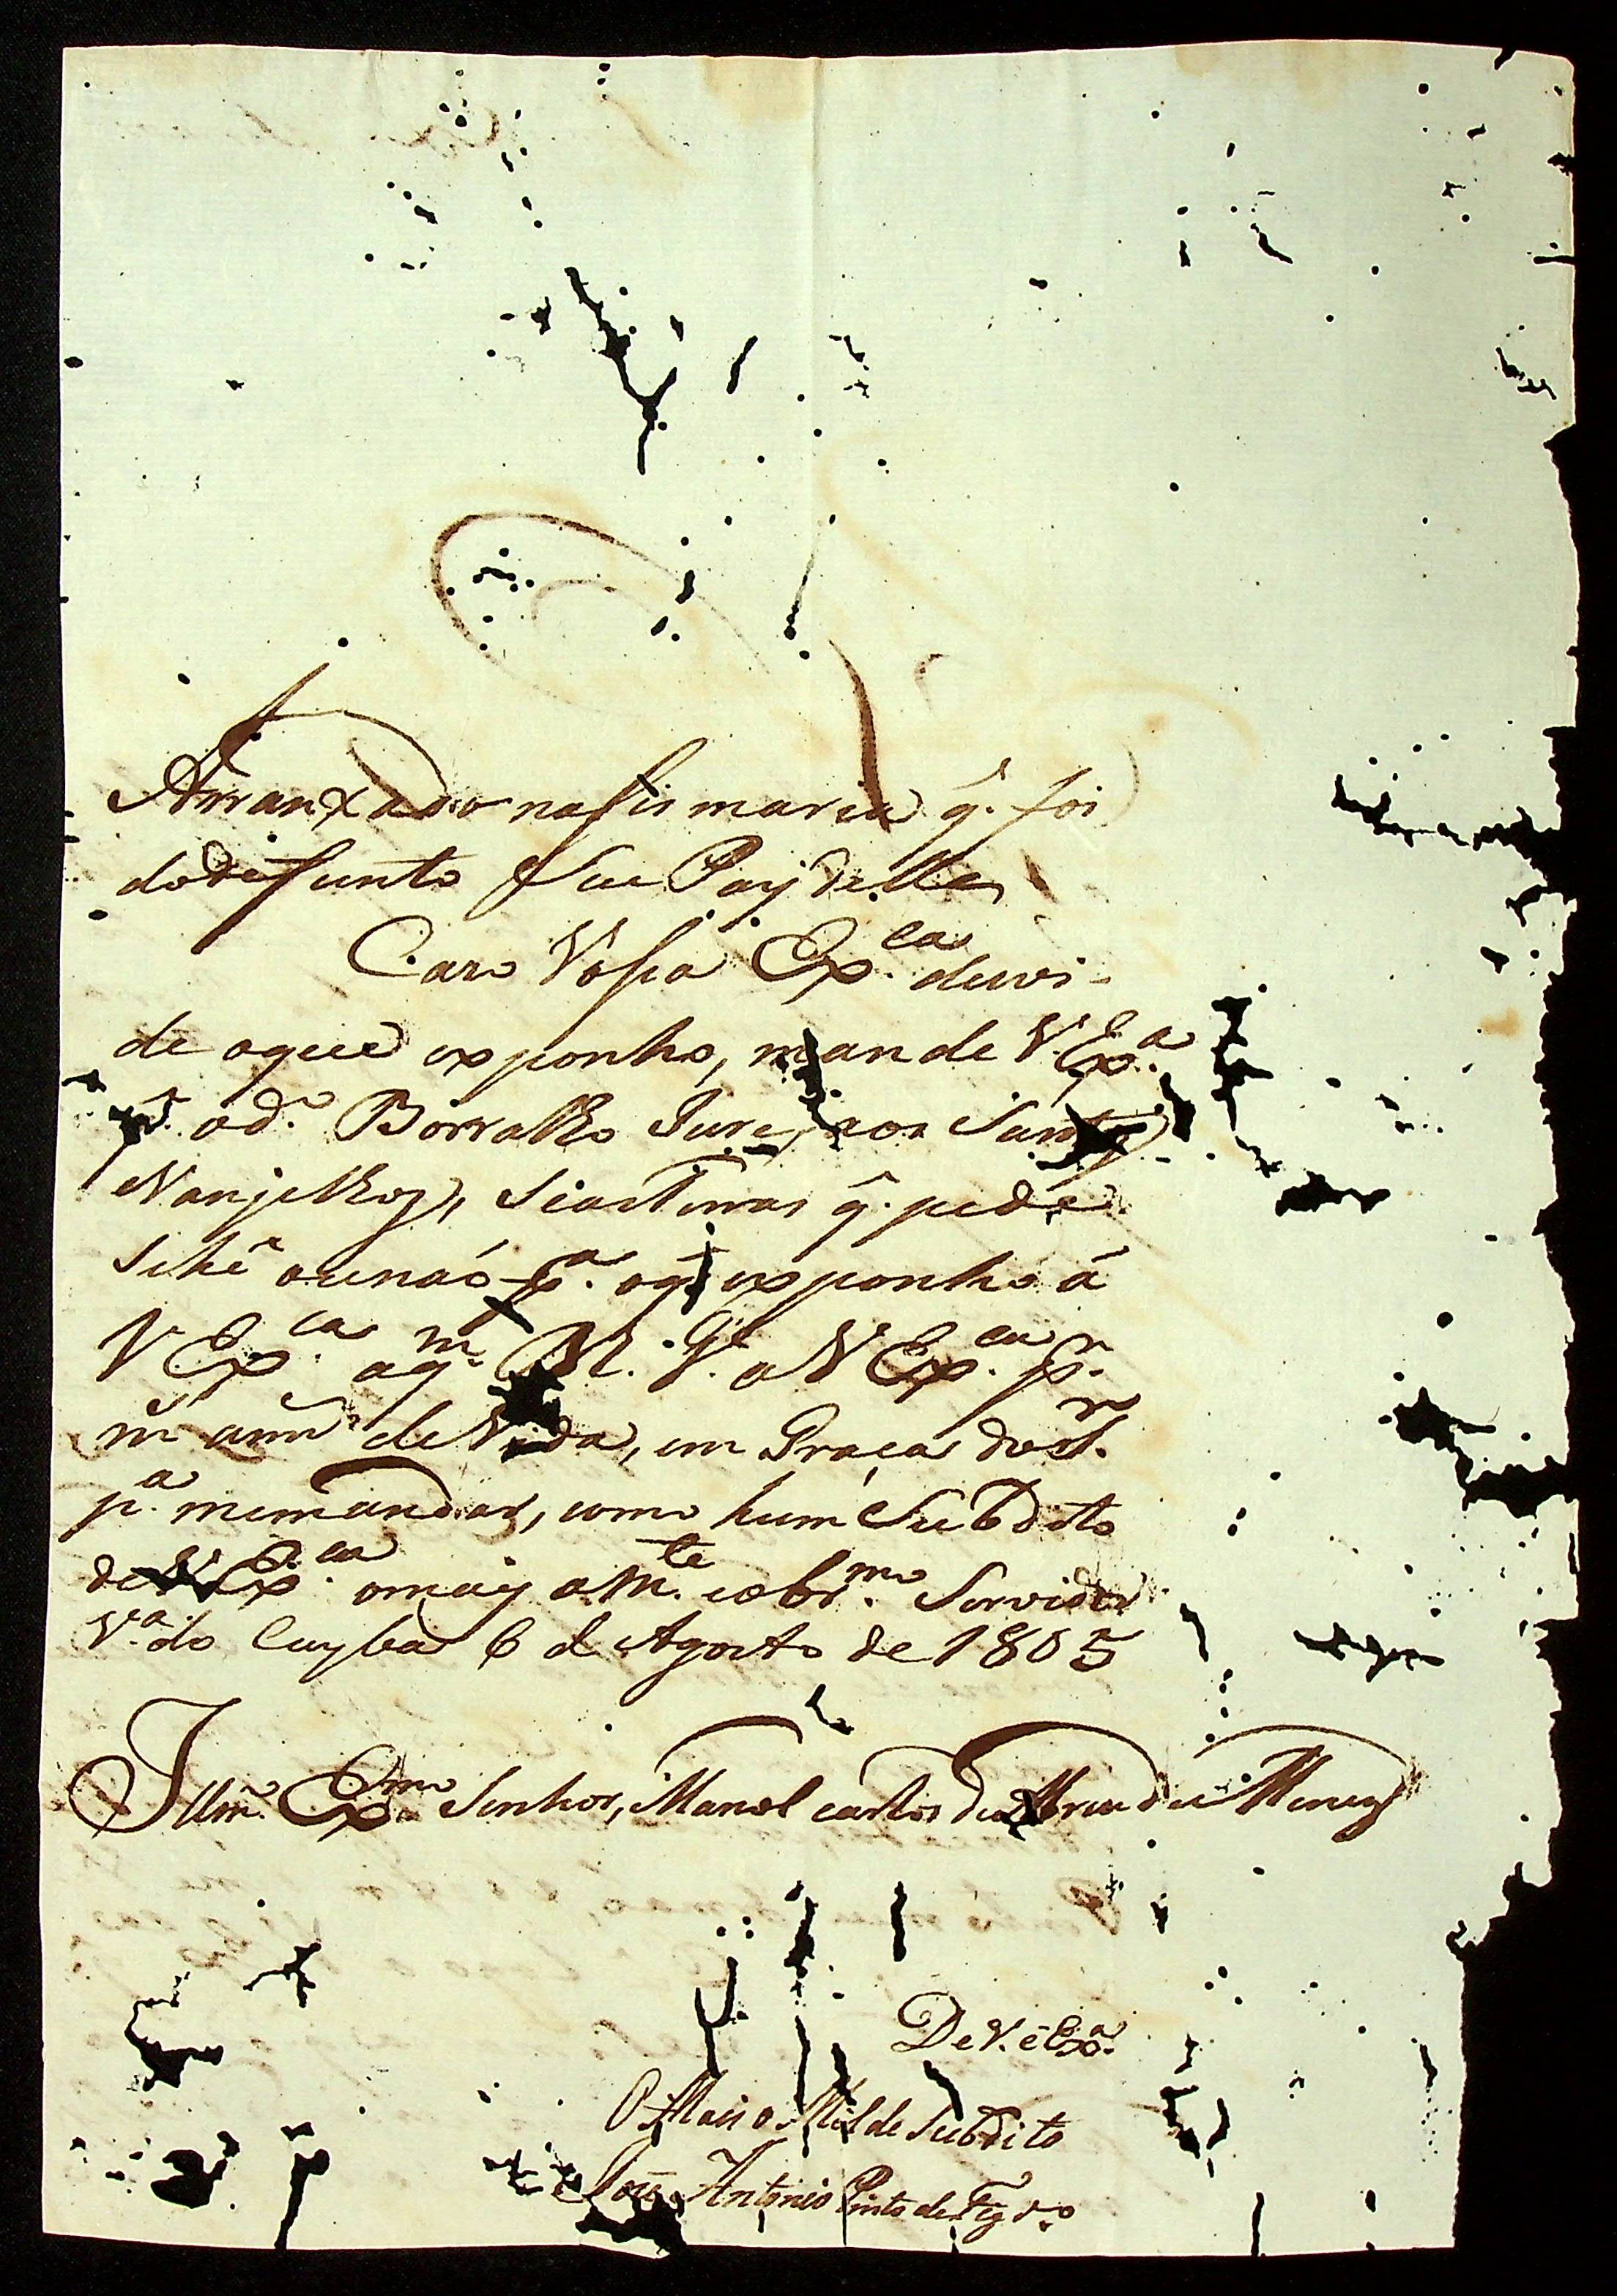 Arranxado nasismaria q̃. foi
dodefunto Sue Pay delle,
Cazo Vossa Ex.ca duvi-
de oque exponho, mande V. Ex.a
q̃. od.o Borralho Jure, aos Santos
Vanjelhos, Seastinas q̃. pede
Sehé ounaó p.a oq̃ exponho á
V Ex.ca aq.m D. G. a V Ex.ca p.r
m ann.s deVida, em Graça doS.r
p.a memandar, como hum Subdito
de V Ex.ca omaiz am.te eobr.mo Servidor
V.a do Cuyba 6 d Agosto de 1805
Illm.o Ex.mo Senhor, Manoel carlos de Abreu de Menezes
De V. ê Ex.a
O Mais oMilde Subdito
Antonio Pinto de Fig.do